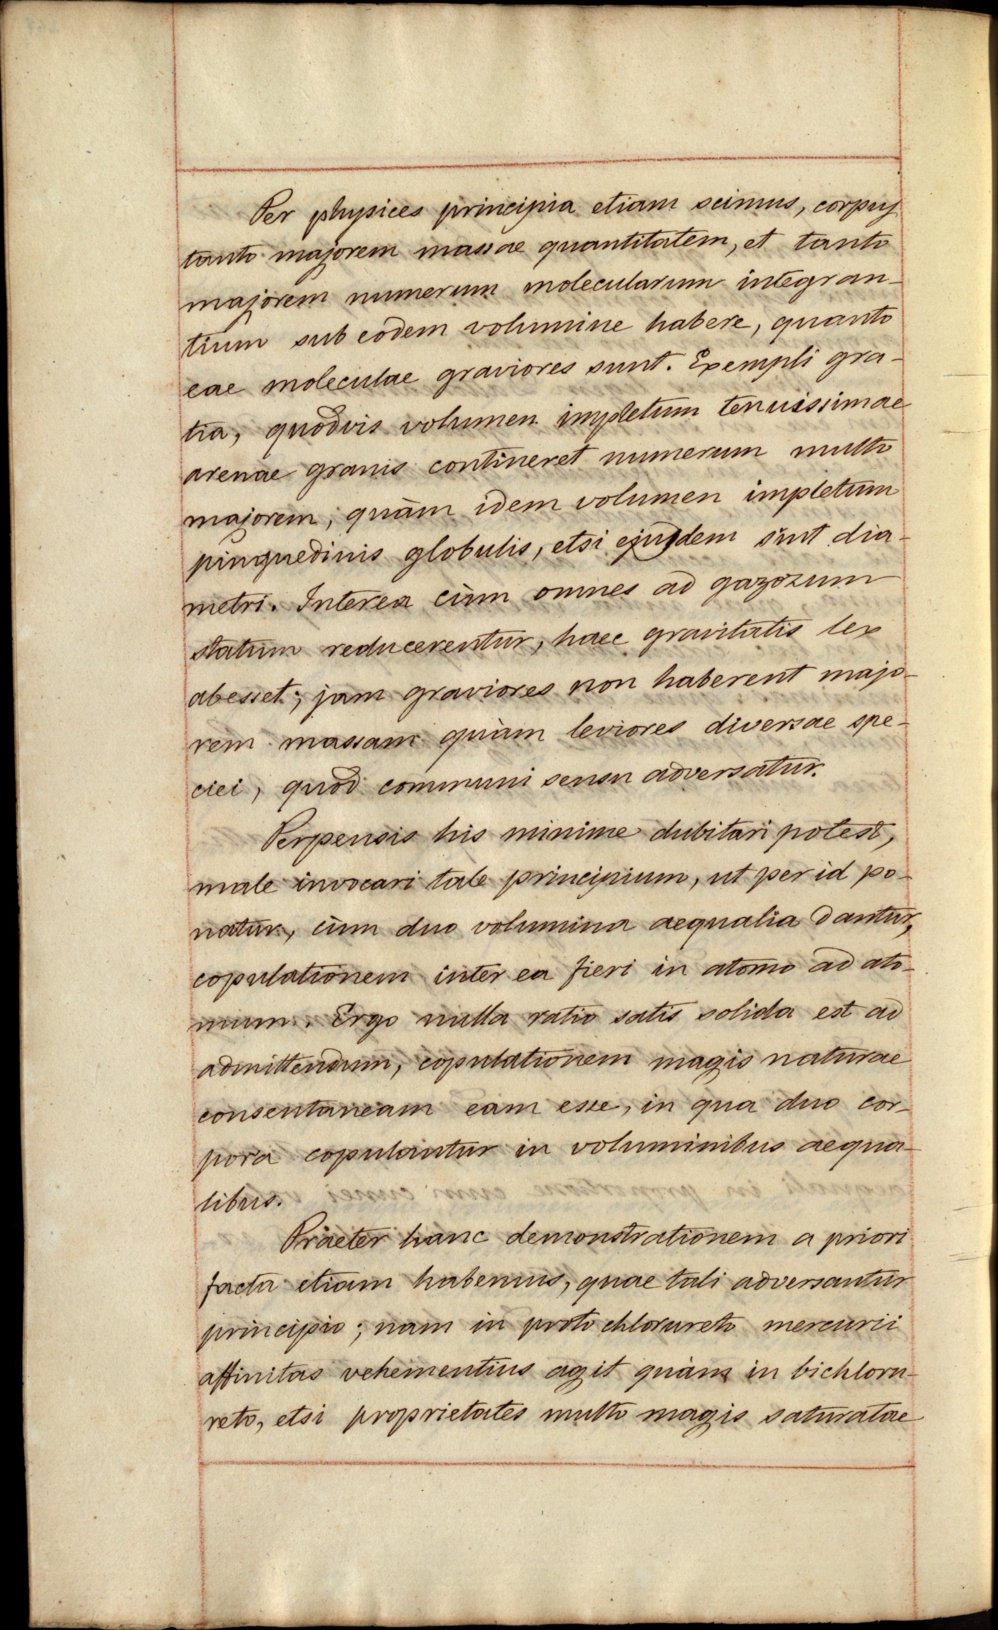 Per physices principia etiam scimus, corpus
tanto majorem massae quantitatem, et tanto
majorem numerum molecularum integran-
tium sub eodem volumine habere, quanto
eae moleculae graviores sunt. Exempli gra-
tia, quodvis volumen impletum tenuissimae
arenae granis contineret numerum multo
majorem, quàm idem volumen impletum
pinquedinis globulis, etsi ejusdem sint dia-
metri. Interea cùm omnes ad gazozum
statum reducerentur, haec gravitatis lex
abesset; jam graviores non haberent majo-
rem massam quàm leviores diversae spe-
ciei, quod communi sensu adversatur.
Perpensis his minime dubitari potest,
male invocari tale principium, ut per id po-
natur, cùm duo volumina aequalia dantur,
copulationem inter ea fieri in atomo ad ato-
mum. Ergo nulla ratio satis solida est ad
admittendum, copulationem magis naturae
consentaneam eam esse, in qua duo cor-
pora copulantur in voluminibus aequa-
libus.
Praeter hanc demonstrationem a priori
facta etiam habemus, quae tali adversantur
principio; nam in proto chlorureto mercurii
affinitas vehementius agit quàm in bichloru-
reto, etsi proprietates multo magis saturatae